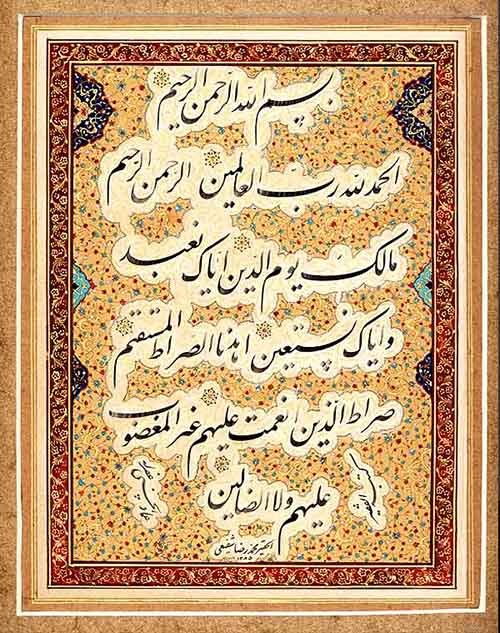 بسم الله الرحمن الرحیم
الحمد لله رب العالمین الرحمن الرحیم
مالک یوم الدین ایاک نعبد
وایاک نستعین اهدنا الصراط المستقیم
صراط الذین انعمت علیهم غیر المغضوب
علیهم ولا الضالین
کتبه الفقیر